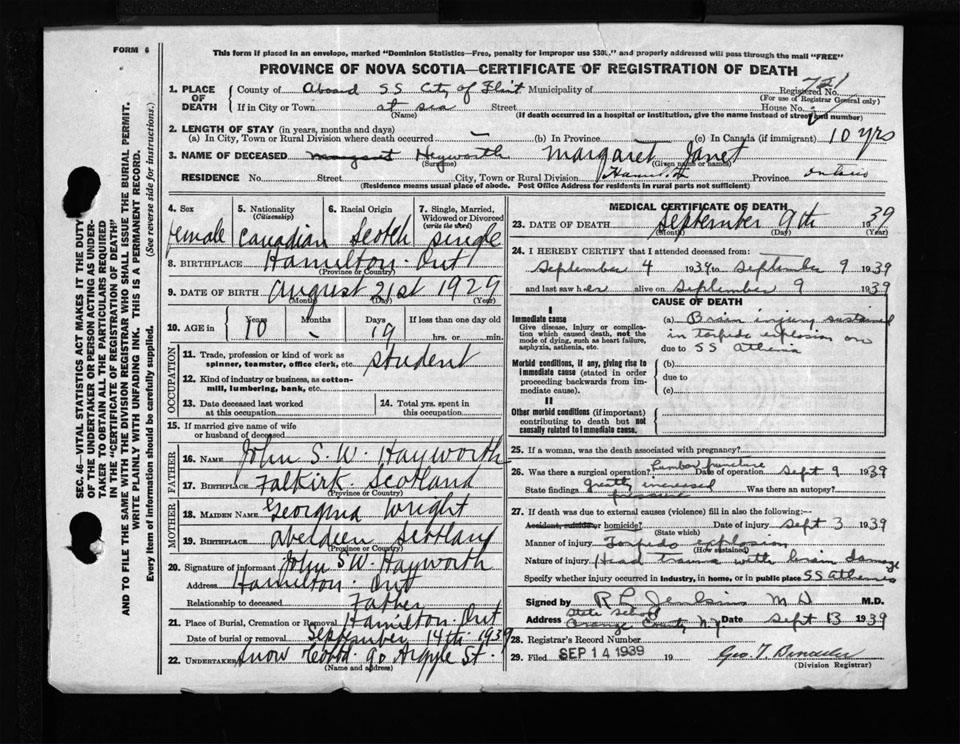 FORM 6
This form if placed in an envelope, marked "Dominion Statistics—Free, penalty for improper use $300," and properly addressed will pass through the mail "FREE"
PROVINCE OF NOVA SCOTIA—CERTIFICATE OF REGISTRATION OF DEATH
1. PLACE OF DEATH
County of Aboard SS City of Flint Municipality of
Registered No.
(For use of Registrar General only)
If in City or Town at sea Street House No.
(Name) (If death occurred in a hospital or institution, give the name instead of street and number)
2. LENGTH OF STAY (in years, months and days)
(a) In City, Town or Rural Division where death occurred — (b) In Province (c) In Canada (if immigrant) 10 yrs
3. NAME OF DECEASED Margaret Heyworth Margaret Janet
(Surname) (Given name or names)
RESIDENCE No. Street City, Town or Rural Division Hamilton Province Ontario
(Residence means usual place of abode. Post Office Address for residents in rural parts not sufficient)
4. Sex female
5. Nationality (Citizenship) Canadian
6. Racial Origin Scotch
7. Single, Married, Widowed or Divorced (write the word) single
8. BIRTHPLACE Hamilton. Ont
(Province or Country)
9. DATE OF BIRTH August 21st 1929
(Month) (Day) (Year)
10. AGE in Years 10 Months - Days 19 If less than one day old hrs. or min.
OCCUPATION
11. Trade, profession or kind of work as spinner, teamster, office clerk, etc. student
12. Kind of industry or business, as cotton-mill, lumbering, bank, etc.
13. Date deceased last worked at this occupation
14. Total yrs. spent in this occupation
15. If married give name of wife or husband of deceased
FATHER
16. NAME John S. W. Hayworth
17. BIRTHPLACE Falkirk Scotland
(Province or Country)
MOTHER
18. MAIDEN NAME Georgina Wright
19. BIRTHPLACE Aberdeen Scotland
(Province or Country)
20. Signature of informant John S W. Hayworth
Address Hamilton. Ont
Relationship to deceased Father
21. Place of Burial, Cremation or Removal Hamilton. Ont
Date of burial or removal September 14th. 1939
22. UNDERTAKER Snow 90 Argyle St.
(Name and address)
MEDICAL CERTIFICATE OF DEATH
23. DATE OF DEATH September 9th 1939
(Month) (Day) (Year)
24. I HEREBY CERTIFY that I attended deceased from:
September 4 1939 to September 9 1939
and last saw her alive on September 9 1939
CAUSE OF DEATH
I
Immediate cause
Give disease, injury or complication which caused death, not the mode of dying, such as heart failure, asphyxia, asthenia, etc.
(a) Brain injury sustained
in torpedo explosion on
due to SS Athenia
Morbid conditions, if any, giving rise to immediate cause (stated in order proceeding backwards from immediate cause).
(b)
due to
(c)
II
Other morbid conditions (if important) contributing to death but not causally related to immediate cause.
25. If a woman, was the death associated with pregnancy?
26. Was there a surgical operation? Lumbar puncture Date of operation Sept 9 1939
State findings Greatly increased pressure Was there an autopsy?
27. If death was due to external causes (violence) fill in also the following:—
Accident, suicide or homicide? Date of injury Sept 3 1939
(State which)
Manner of injury Torpedo explosion
(How sustained)
Nature of injury Head trauma with brain damage
Specify whether injury occurred in industry, in home, or in public place SS Athenia
Signed by R L Jenkins M D M.D.
Address State School Orange County N.Y. Date Sept 13 1939
28. Registrar's Record Number
29. Filed SEP 14 1939 19 Geo. T.
(Division Registrar)
SEC. 46—VITAL STATISTICS ACT MAKES IT THE DUTY
OF THE UNDERTAKER OR PERSON ACTING AS UNDER-
TAKER TO OBTAIN ALL THE PARTICULARS REQUIRED
IN THE "CERTIFICATE OF REGISTRATION OF DEATH"
AND TO FILE THE SAME WITH THE DIVISION REGISTRAR WHO SHALL ISSUE THE BURIAL PERMIT.
WRITE PLAINLY WITH UNFADING INK. THIS IS A PERMANENT RECORD.
Every item of information should be carefully supplied. (See reverse side for instructions.)